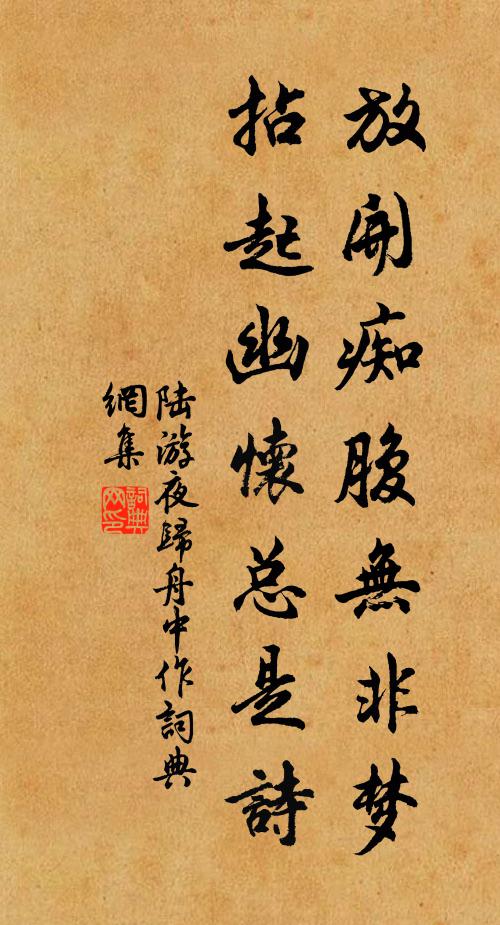 放開痴腹無非梦
拈起幽懷总是詩
陆游夜歸舟中作詞典
網集
詞典
网印